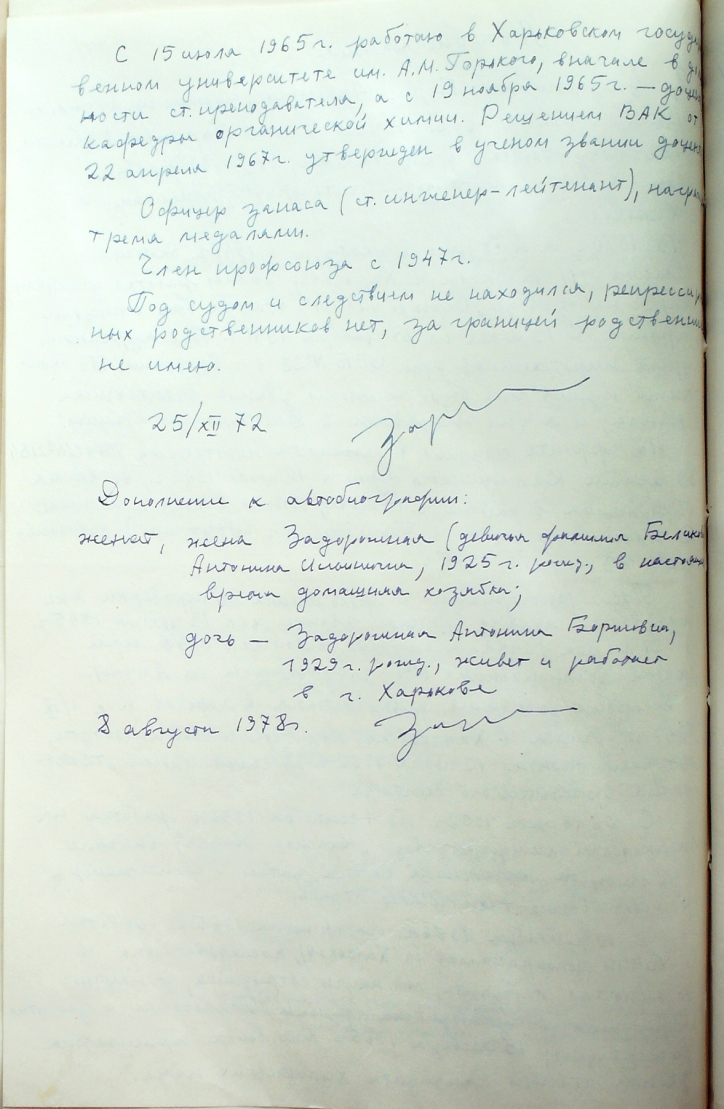 С 15 июля 1965 г. работаю в Харьковском госуда
венном университете им. А.М. Горького, вначале в д
ности ст. преподавателя, а с 19 ноября 1965 г. — доцен
кафедры органической химии. Решением ВАК от
22 апреля 1967 г. утвержден в ученом звании доцен
Офицер запаса (ст. инженер-лейтенант), награ
тремя медалями.
Член профсоюза с 1947 г.
Под судом и следствием не находился, репрессир
ных родственников нет, за границей родственни
не имею.
25/XII 72
Дополнение к автобиографии:
женат, жена Задорожная (девичья фамилия Белик
Антонина Ильинична, 1925 г. рожд., в настоящ
время домашняя хозяйка;
дочь — Задорожная Антонина Борисовна,
1929 г. рожд., живет и работает
в г. Харькове
8 августа 1978 г.